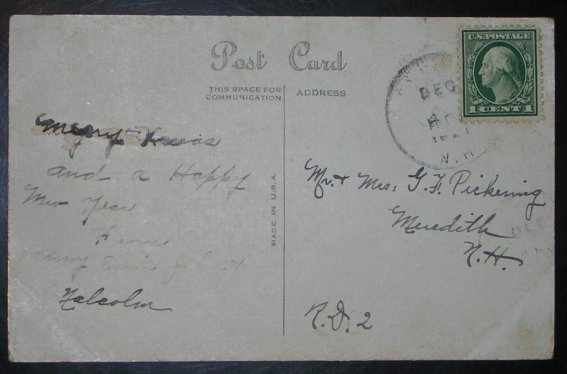 Post Card
THIS SPACE FOR
COMMUNICATION
ADDRESS
U.S. POSTAGE
1 CENT 1
DEC
192
Merry Xmas
and a Happy
New Year
From
Malcolm
MADE IN U.S.A.
Mr. & Mrs. G. F. Pickering
Meredith
N.H.
R.D. 2